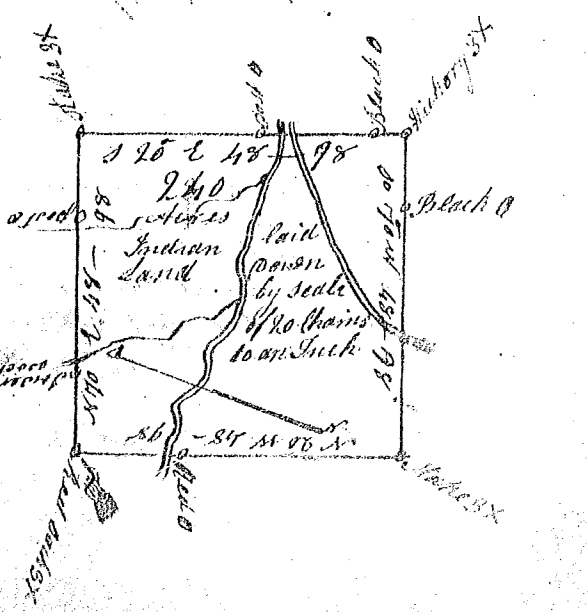 Stake 3X
Post O
Black O
Hickory 3X
S 20 E 48 - 98
240
Acres
Indian
Land
laid
Down
by Scale
of 20 Chains
to an Inch
Black O
S 70 W 48 - 98
N 70 E 48 - 98
N 20 W 48 - 98
N
Red O
Red Oak 3X
Stake 3X